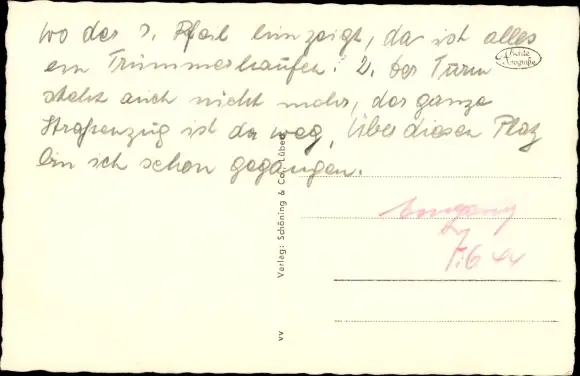 wo der 1. Pfeil hinzeigt, da ist alles
ein Trümmerhaufen. 2. der Turm
steht auch nicht mehr, der ganze
Straßenzug ist da weg, Über diesen Platz
bin ich schon gegangen.
Echte
Fotografie
Eingang
7.6.44
Verlag: Schöning & Co., Lübeck
VV